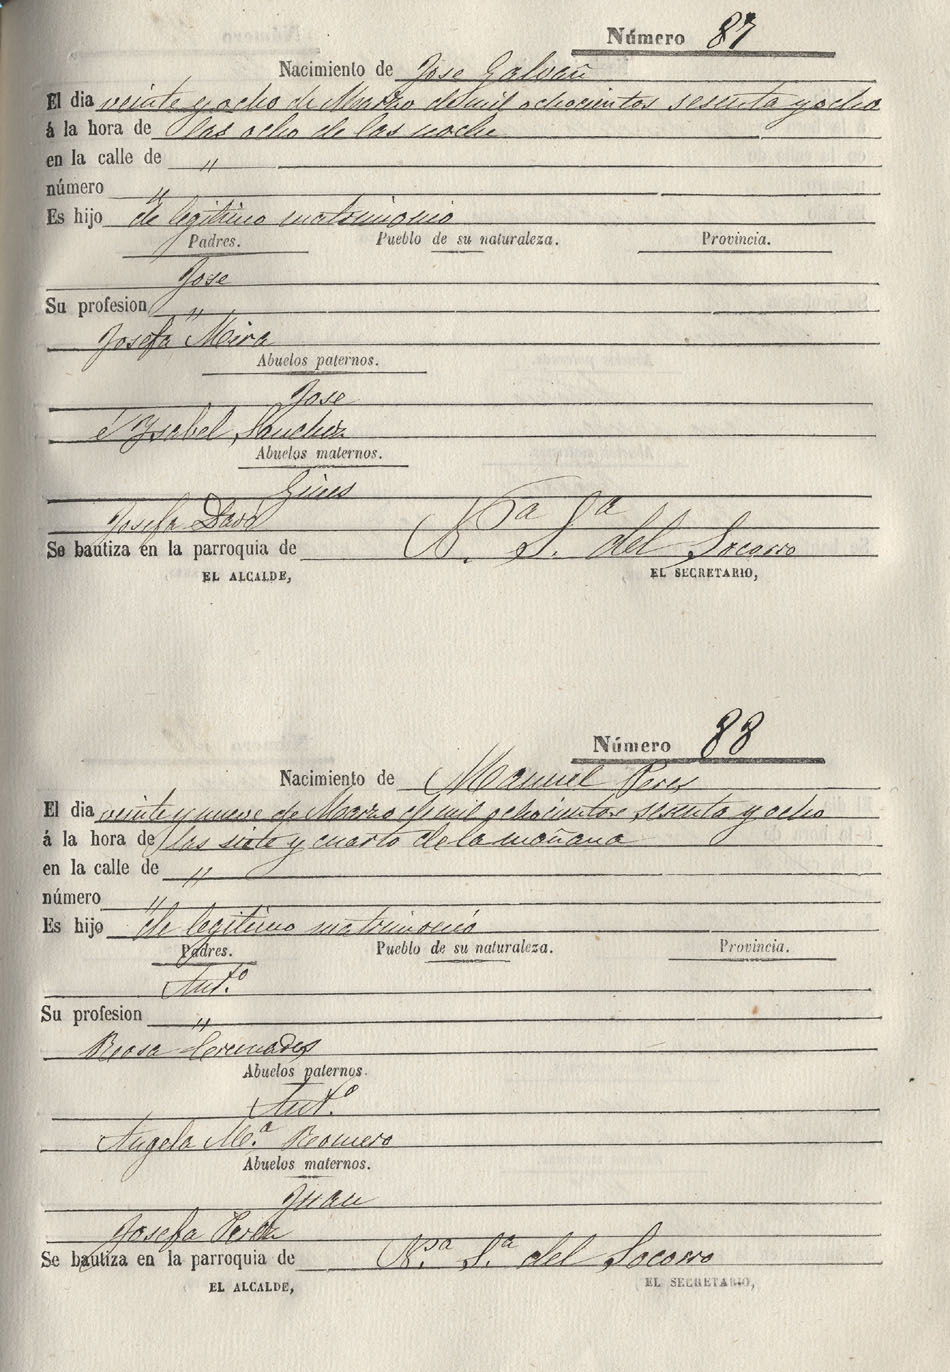 Número 87
Nacimiento de Jose Galvañ
El dia veinte y ocho de Marzo de mil ochocientos sesenta y ocho
á la hora de las ocho de las noche
en la calle de "
número "
Es hijo de legitimo matrimonio
Padres. Pueblo de su naturaleza. Provincia.
Jose
Su profesion "
Josefa Mira
Abuelos paternos.
Jose
é Ysabel Sanchez
Abuelos maternos.
Gines
Josefa Davó
Se bautiza en la parroquia de N.ª S.ª del Socorro
EL ALCALDE, EL SECRETARIO,
Número 88
Nacimiento de Manuel Peres
El dia veinte y nueve de Marzo de mil ochocientos sesenta y ocho
á la hora de las siete y cuarto de la mañana
en la calle de "
número "
Es hijo de legitimo matrimonio
Padres. Pueblo de su naturaleza. Provincia.
Ant.º
Su profesion "
Rosa Cremades
Abuelos paternos.
Ant.º
Angela M.ª Romero
Abuelos maternos.
Juan
Josefa Perez
Se bautiza en la parroquia de N.ª S.ª del Socorro
EL ALCALDE, EL SECRETARIO,